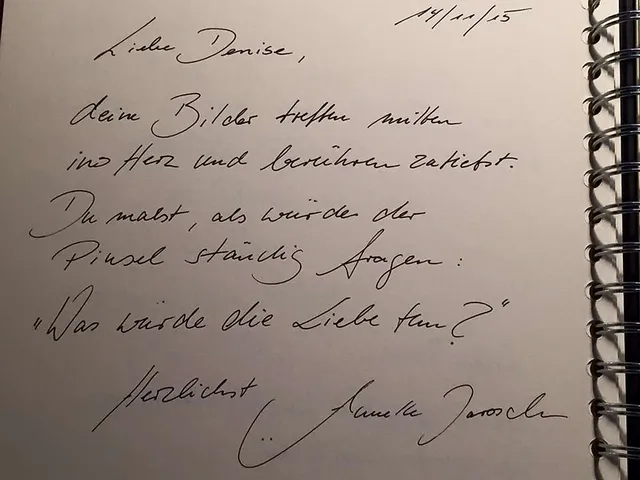 14/11/15
Liebe Denise,
deine Bilder treffen mitten
ins Herz und berühren zutiefst.
Du malst, als würde der
Pinsel ständig fragen:
"Was würde die Liebe tun?"
Herzlichst
Annette Jarosch